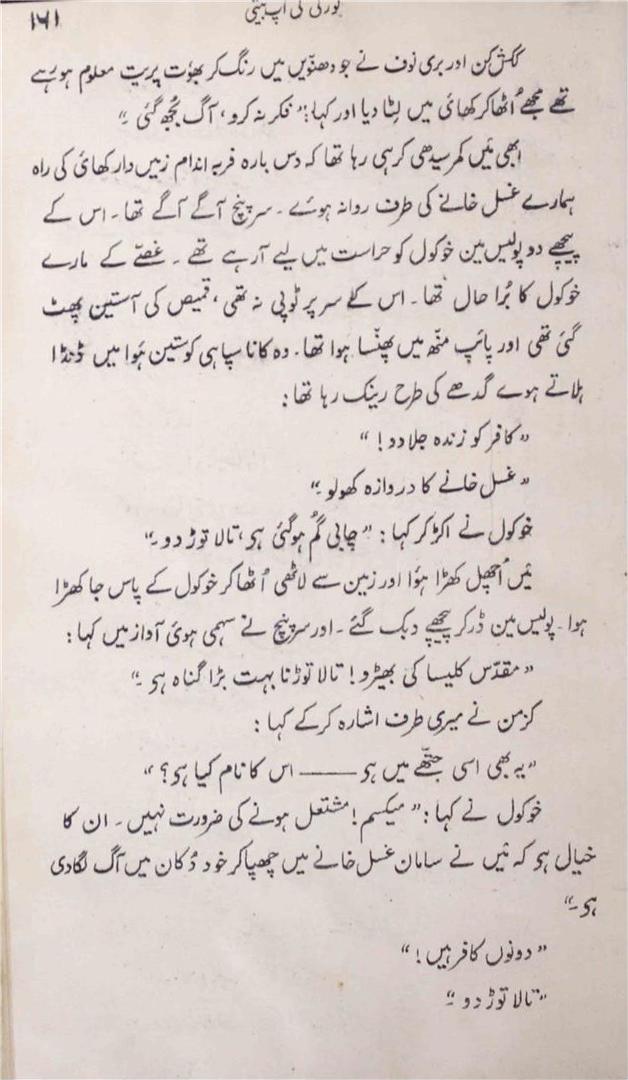 ۱۶۱ گورکی کی آپ بیتی
ککش کن اور بری نوف نے جو دھنوّیں میں رنگ کر بھوُت پریت معلوم ہو رہے
تھے مجھے اُٹھا کر کھائی میں لِٹا دیا اور کہا: ”فکر نہ کرو، آگ بُجھ گئی ۔“
ابھی مَیں کمر سیدھی کر ہی رہا تھا کہ دس بارہ فربہ اندام زمیں دار کھائی کی راہ
ہمارے غسل خانے کی طرف روانہ ہوئے ۔ سر پنچ آگے آگے تھا ۔ اس کے
پیچھے دو پولیس مین خوکول کو حراست میں لیے آ رہے تھے ۔ غصّے کے مارے
خوکول کا بُرا حال تھا ۔ اس کے سر پر ٹوپی نہ تھی ، قمیص کی آستین پھٹ
گئی تھی اور پائپ منھ میں پھنّسا ہوا تھا ۔ وہ کانا سپاہی کوستین ہَوا میں ڈنڈا
ہلاتے ہوے گدھے کی طرح رینک رہا تھا :
”کافر کو زندہ جلا دو ! “
”غسل خانے کا دروازہ کھولو ۔“
خوکول نے اکڑ کر کہا : ”چابی گُم ہو گئی ہی ، تالا توڑ دو ۔“
مَیں اُچھل کھڑا ہؤا اور زمین سے لاٹھی اُٹھا کر خوکول کے پاس جا کھڑا
ہوا ۔ پولیس مین ڈر کر پیچھے دبک گئے ۔ اور سر پنچ نے سہمی ہوئی آواز میں کہا :
”مقدّس کلیسا کی بھیڑو ! تالا توڑنا بہت بڑا گناہ ہی ۔“
کزمن نے میری طرف اشارہ کرکے کہا :
”یہ بھی اسی جتھّے میں ہی ــــــــ اس کا نام کیا ہی ؟ “
خوکول نے کہا : ”میکسم ! مشتعل ہونے کی ضرورت نہیں ۔ ان کا
خیالی ہو کہ مَیں نے سامان غسل خانے میں چھپا کر خود دُکان میں آگ لگا دی
ہی ۔“
”دونوں کافر ہیں ! “
”تالا توڑ دو ۔“